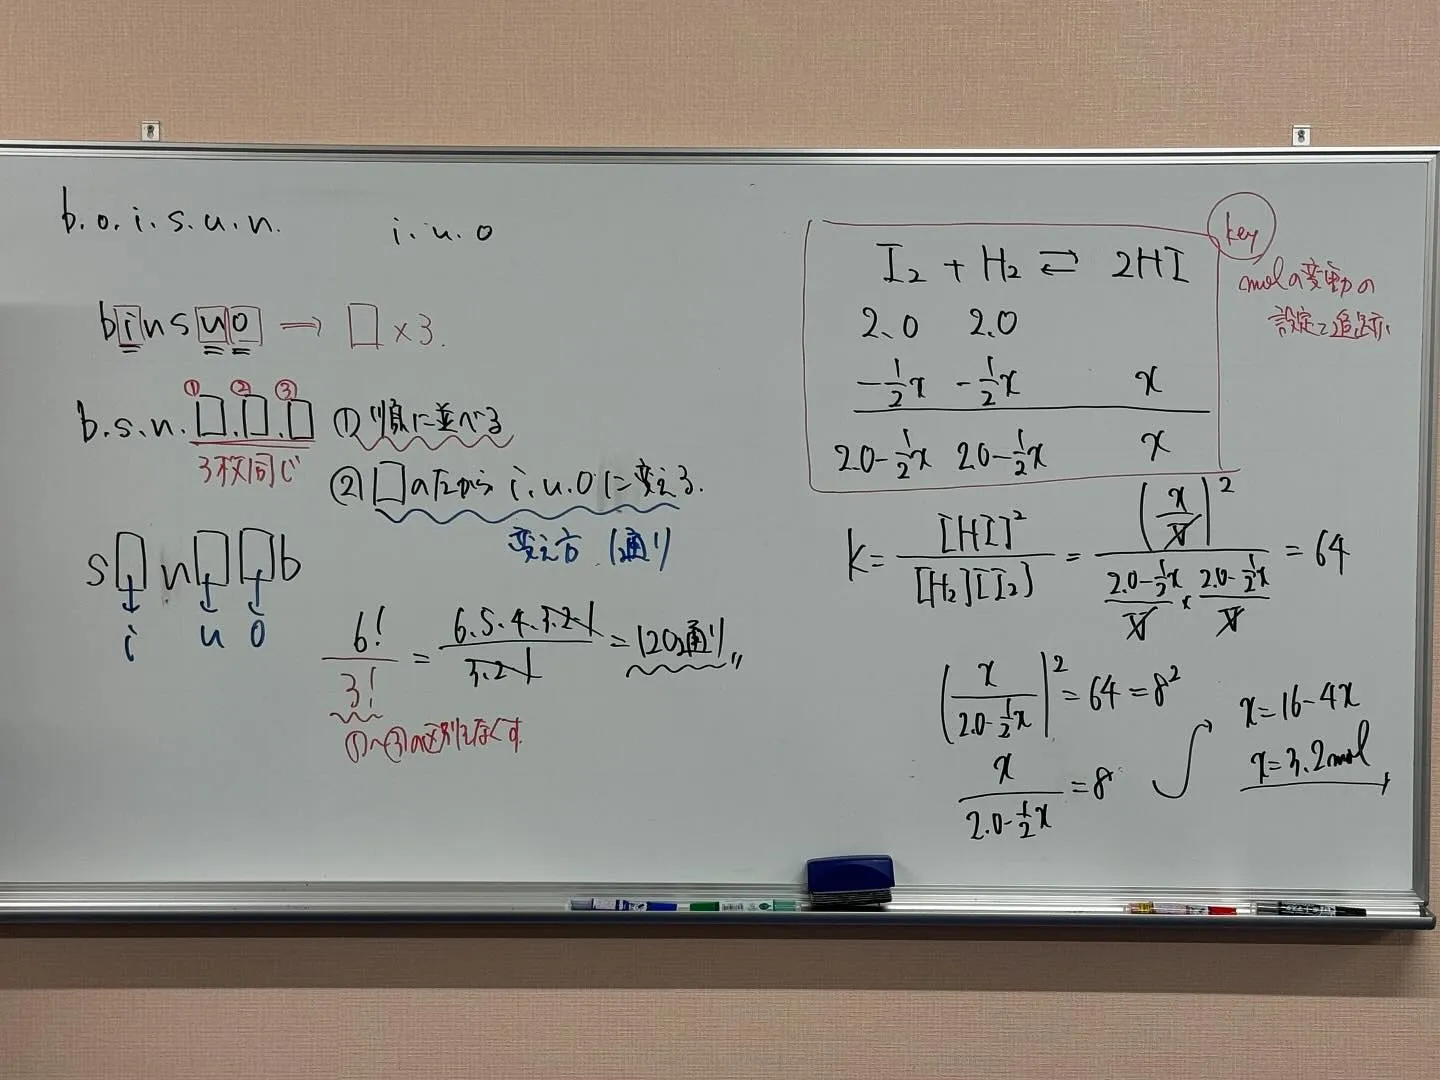 b.o.i.s.u.n.
i.u.o
binsuo → □×3.
① ② ③
b.s.n.□.□.□
3枚同じ
①順に並べる
②□の左から i.u.oに変える.
変え方 1通り
s□n□□b
i u o
6!/3! = 6.5.4.3.2.1/3.2.1 = 120通り〃
①〜③の区別をなくす
key
molの変動の
設定と追跡
I₂ + H₂ ⇄ 2HI
2.0 2.0
-1/2x -1/2x x
2.0-1/2x 2.0-1/2x x
K = [HI]²/[H₂][I₂] = (x/V)²/(2.0-1/2x/V × 2.0-1/2x/V) = 64
(x/2.0-1/2x)² = 64 = 8²
x/2.0-1/2x = 8
x=16-4x
x=3.2mol